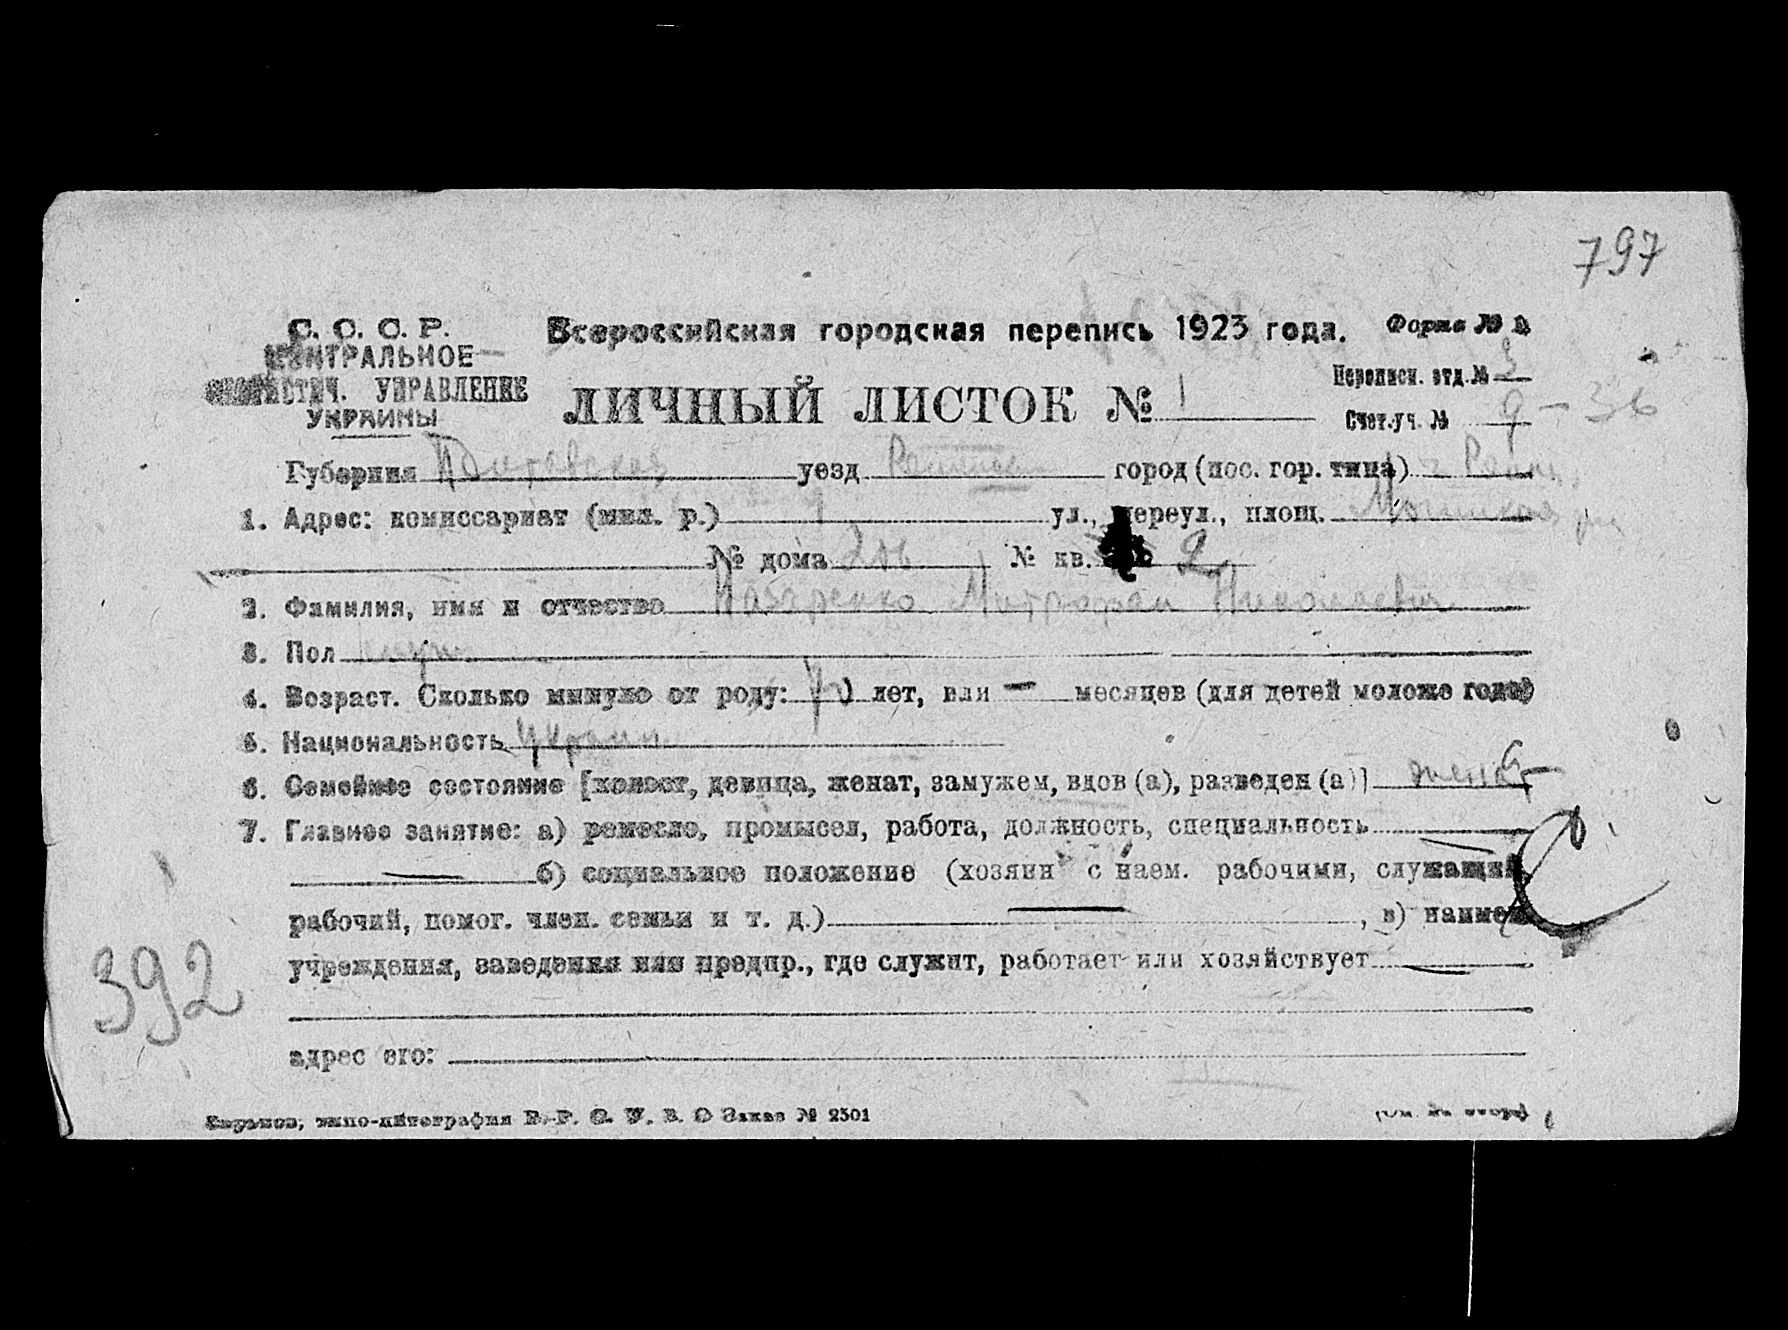 797
С. С. С. Р.
ЦЕНТРАЛЬНОЕ
СТАТИСТИЧ. УПРАВЛЕНИЕ
УКРАИНЫ
Всероссийская городская перепись 1923 года.
Форма № 2
ЛИЧНЫЙ ЛИСТОК № 1
Переписн. отд. № 3
Счет.уч. № 9 – 36
Губерния Полтавская уезд город (пос. гор. типа) г
1. Адрес: комиссариат (мил. р.) ул., переул., площ.
№ дома № кв. 2
2. Фамилия, имя и отчество Назаренко Митрофан Николаевич
3. Пол муж.
4. Возраст. Сколько минуло от роду: 70 лет, или — месяцев (для детей моложе года)
5. Национальность украин.
6. Семейное состояние [холост, девица, женат, замужем, вдов (а), разведен (а)] женат
7. Главное занятие: а) ремесло, промысел, работа, должность, специальность —
— б) социальное положение (хозяин с наем. рабочими, служащий
рабочий, помог. член. семьи и т. д.) — , в) наимен.
учреждения, заведения или предпр., где служит, работает или хозяйствует —
392
адрес его:
Харьков, типо-литография В. Заказ № 2301